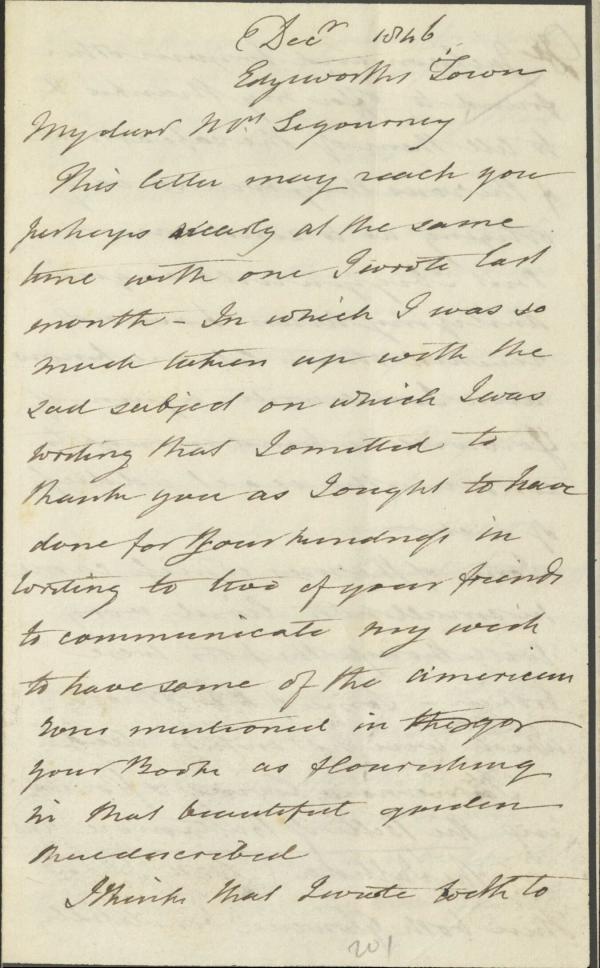 Decr 1846
Edgeworths Town
My dear Mrs Sigourney
This letter may reach you
perhaps nearly at the same
time with one I wrote last
month - In which I was so
much taken up with the
sad subject on which I was
writing that I omitted to
thank you as I ought to have
done for your kindness in
writing to two of your friends
to communicate my wish
to have some of the american
roses mentioned in
your Book as flourishing
in that beautiful garden
there described
I think that I wrote both to
201